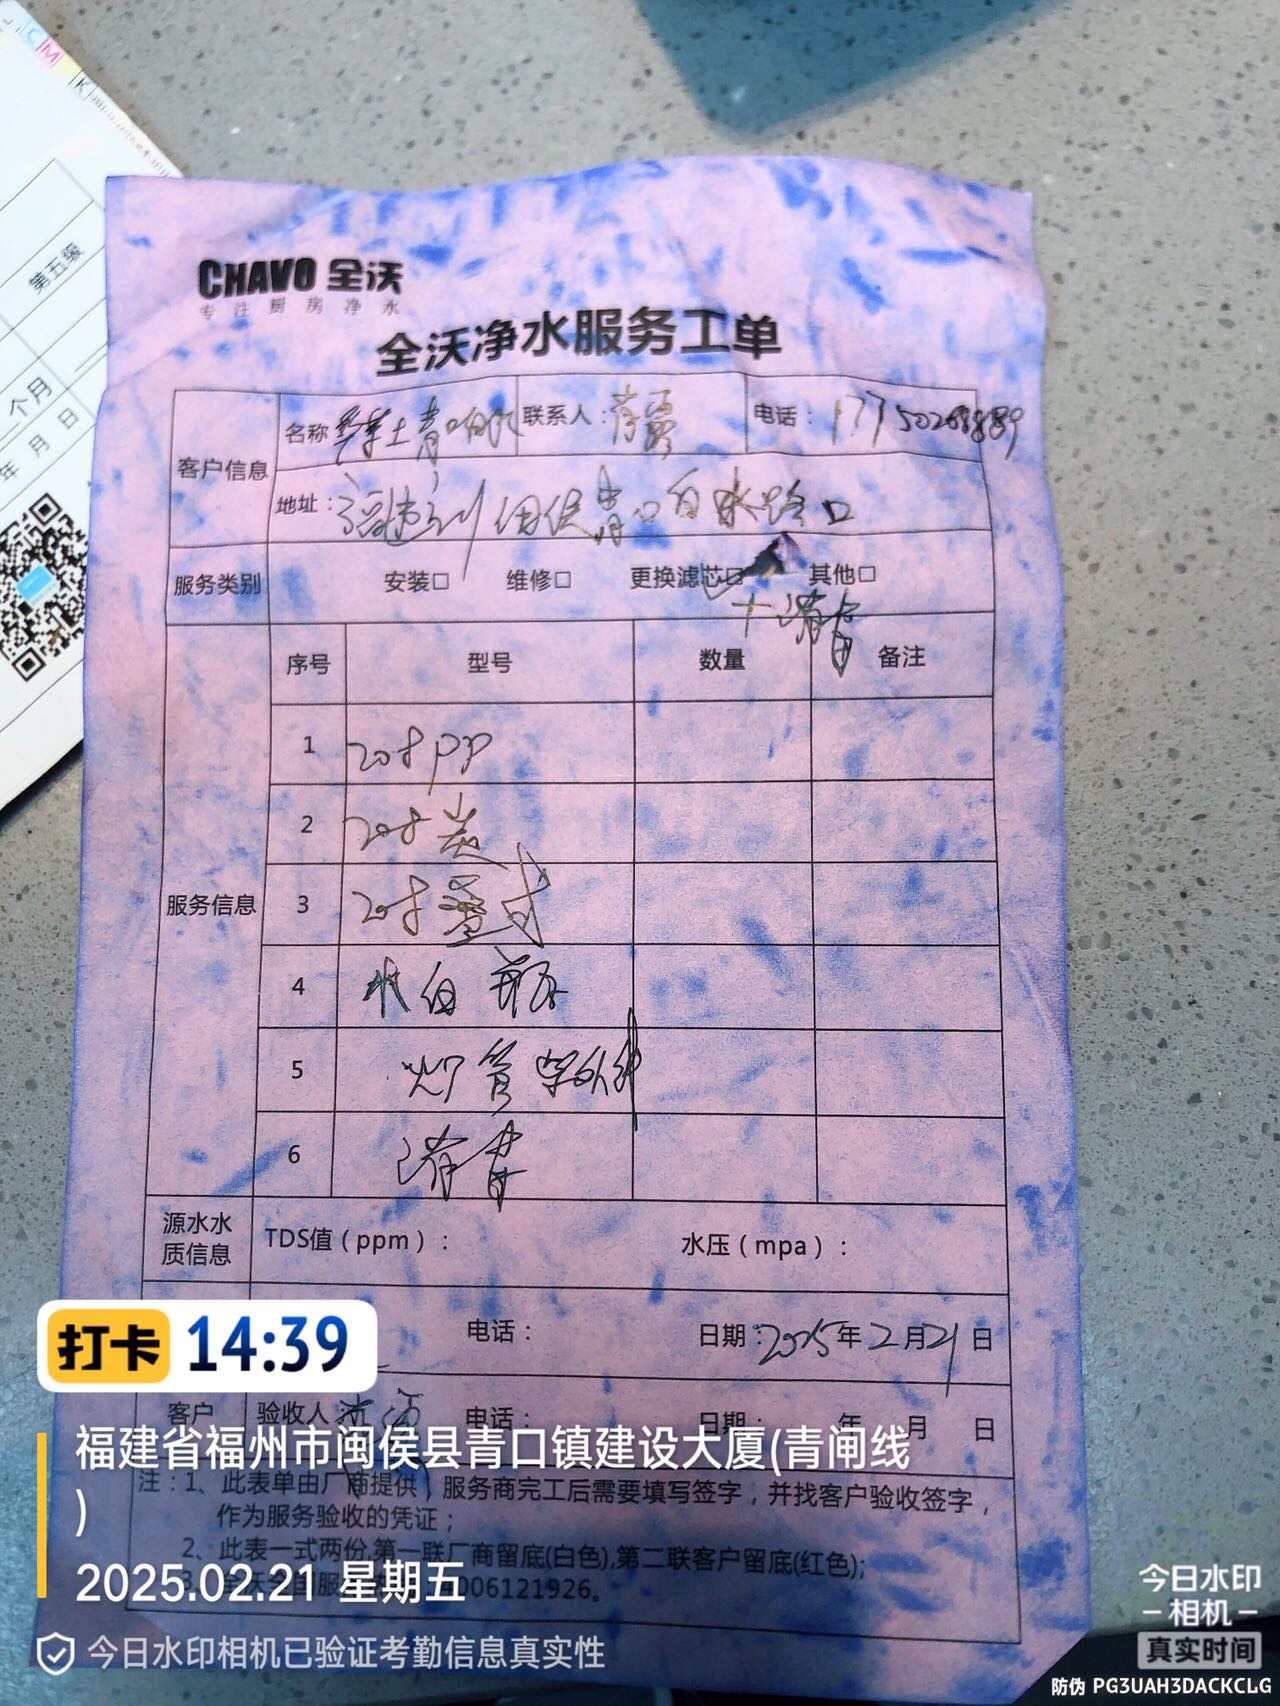 C M Y K
第五级
个月
年 月 日
CHAVO 全沃
专注厨房净水
全沃净水服务工单
客户信息 名称 联系人: 电话:
地址: 福建福州闽侯青口白水路口
服务类别 安装□ 维修□ 更换滤芯□ 其他□
+清
服务信息 序号 型号 数量 备注
1 20寸PP
2 20寸炭
3 20寸叠式
4
5
6 清
源水水质信息 TDS值(ppm): 水压(mpa):
电话: 日期: 2025年2月21日
客户 验收人 电话: 日期: 年 月 日
注:1、此表单由厂商提供,服务商完工后需要填写签字,并找客户验收签字,
作为服务验收的凭证;
2、此表一式两份,第一联厂商留底(白色),第二联客户留底(红色);
打卡 14:39
福建省福州市闽侯县青口镇建设大厦(青闸线
)
2025.02.21 星期五
今日水印相机已验证考勤信息真实性
今日水印
-相机-
真实时间
防伪 PG3UAH3DACKCLG